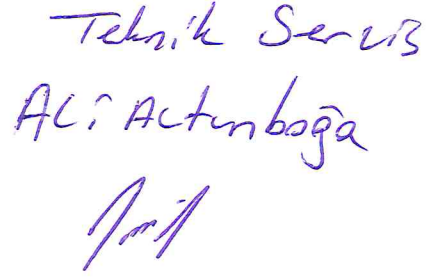 Teknik Servis
Ali Altunboğa